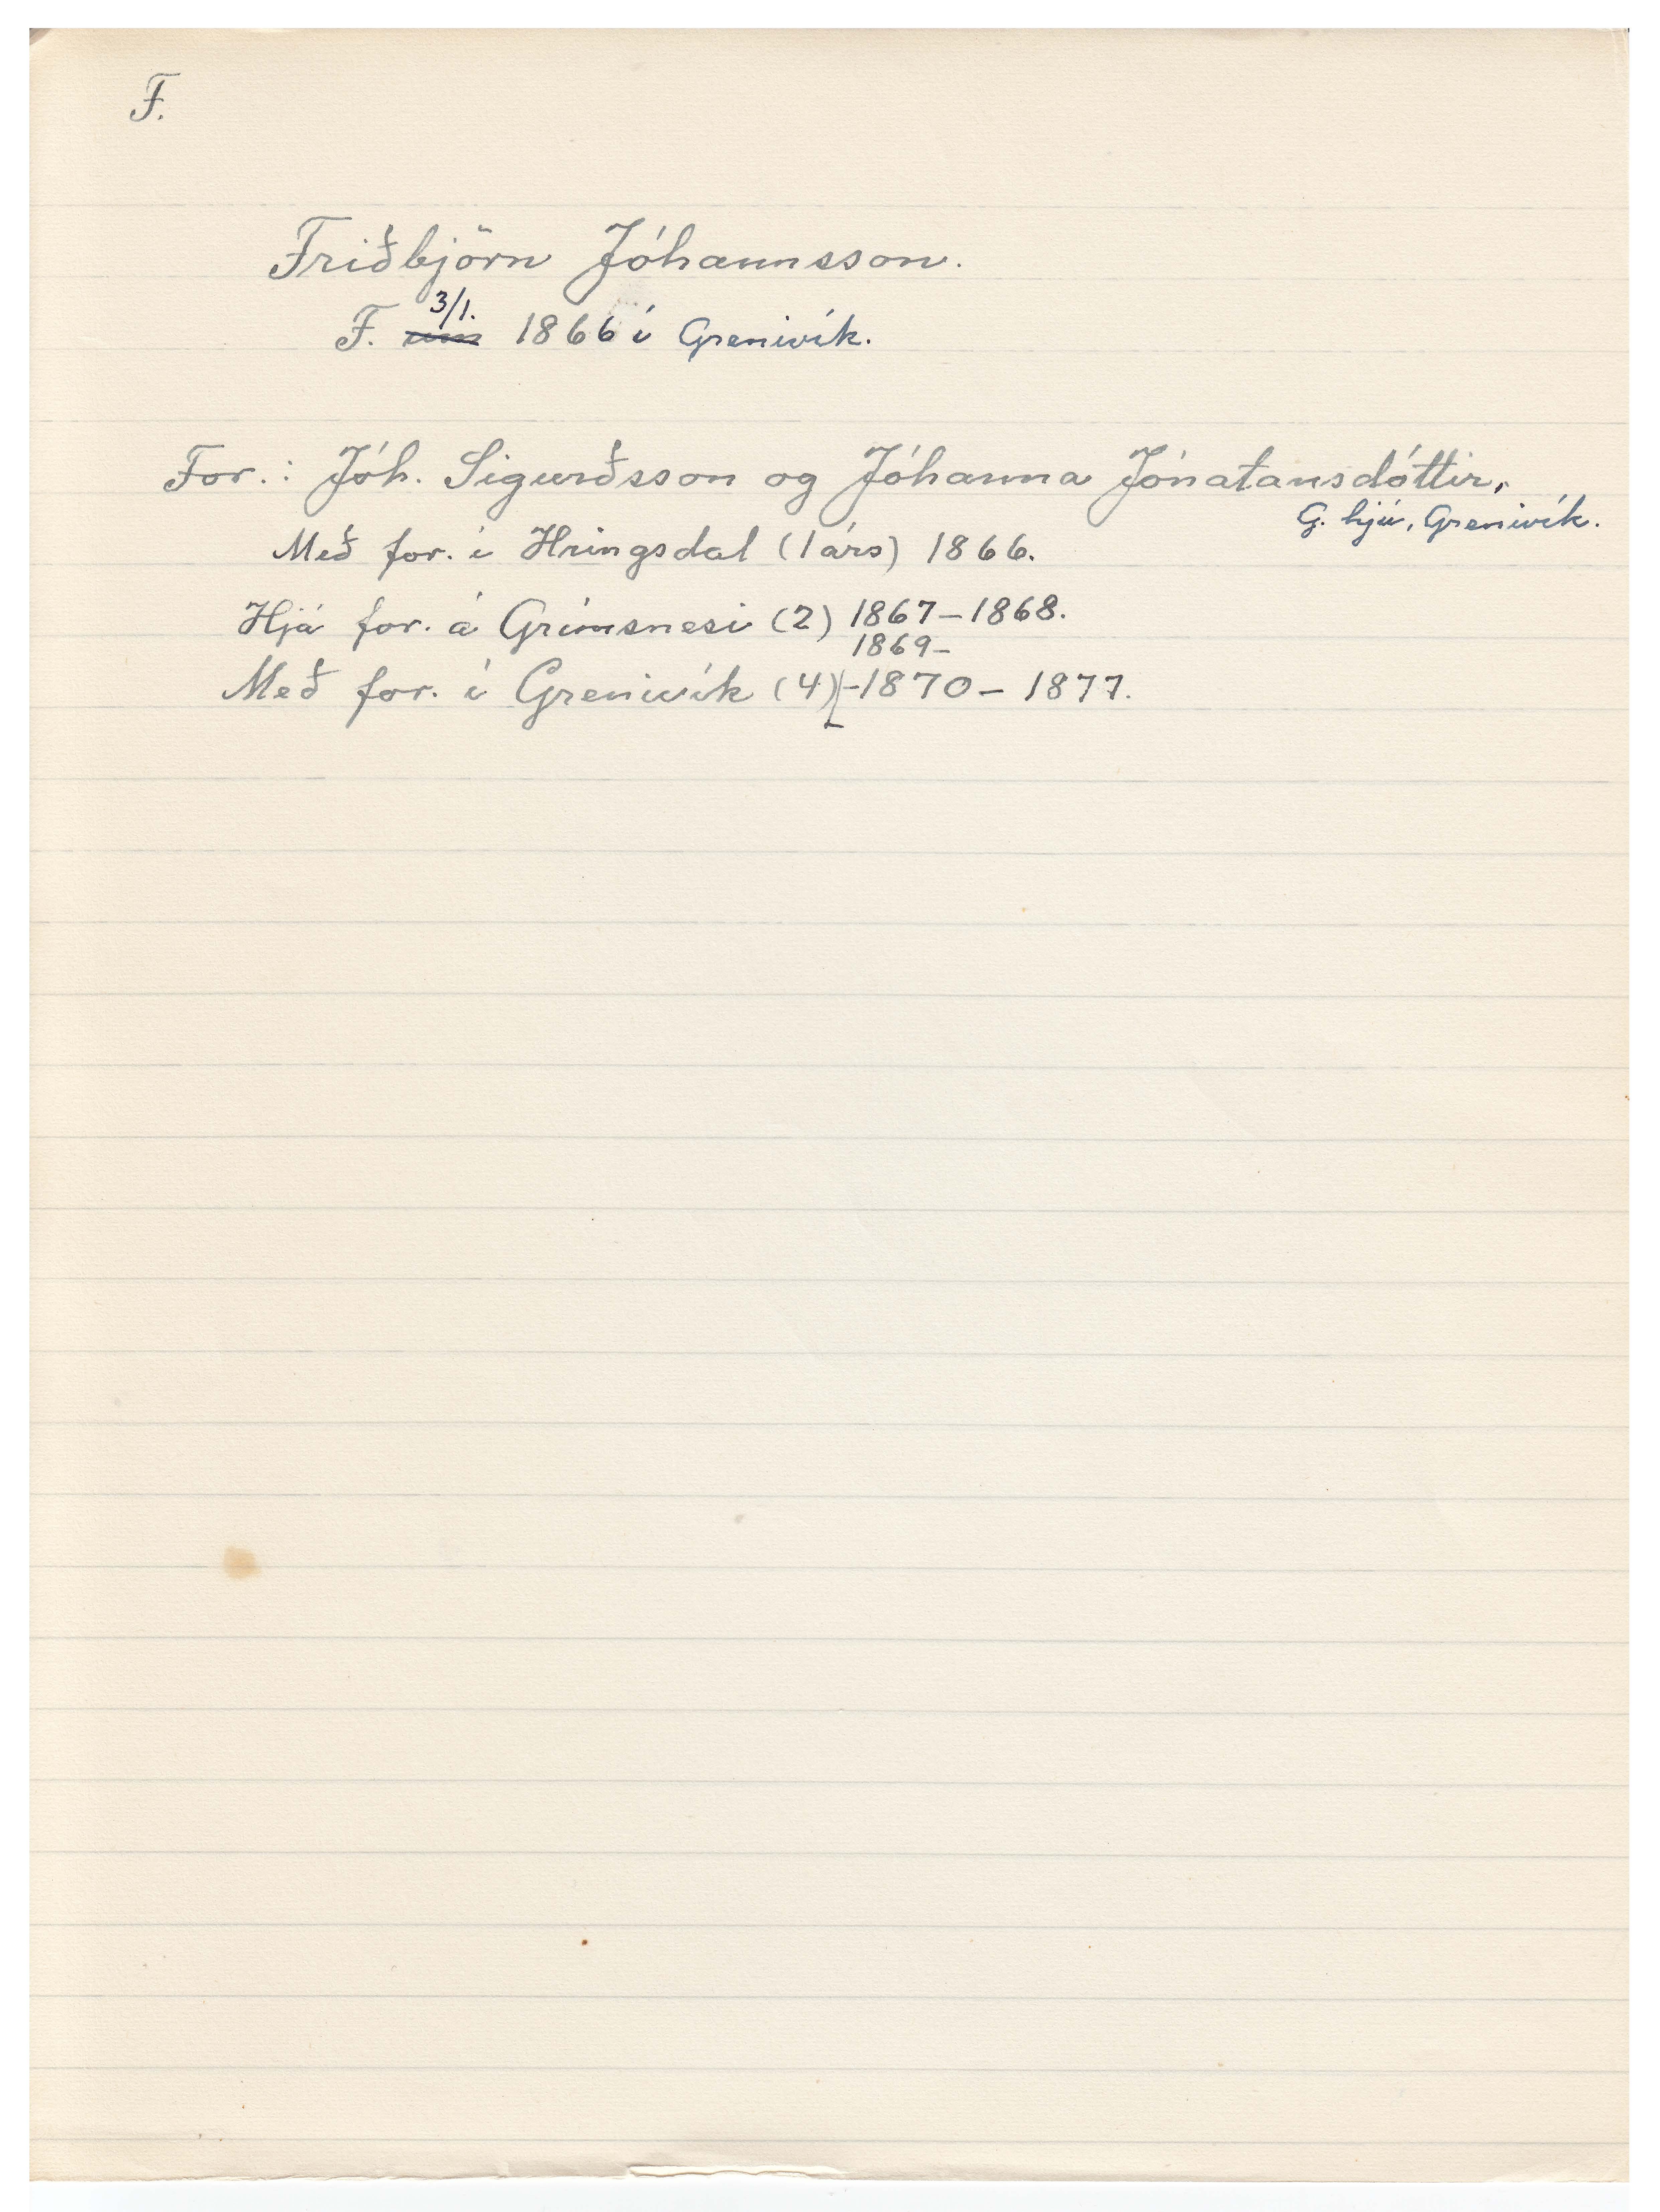 F.
Friðbjörn Jóhannsson.
3/1.
F. um 1866 í Grenivík.
For.: Jóh. Sigurðsson og Jóhanna Jónatansdóttir,
G. hjú, Grenivík.
Með for. í Hringsdal (1 árs) 1866.
Hjá for. á Grímsnesi (2) 1867-1868.
1869-
Með for. í Grenivík (4) -1870- 1877.